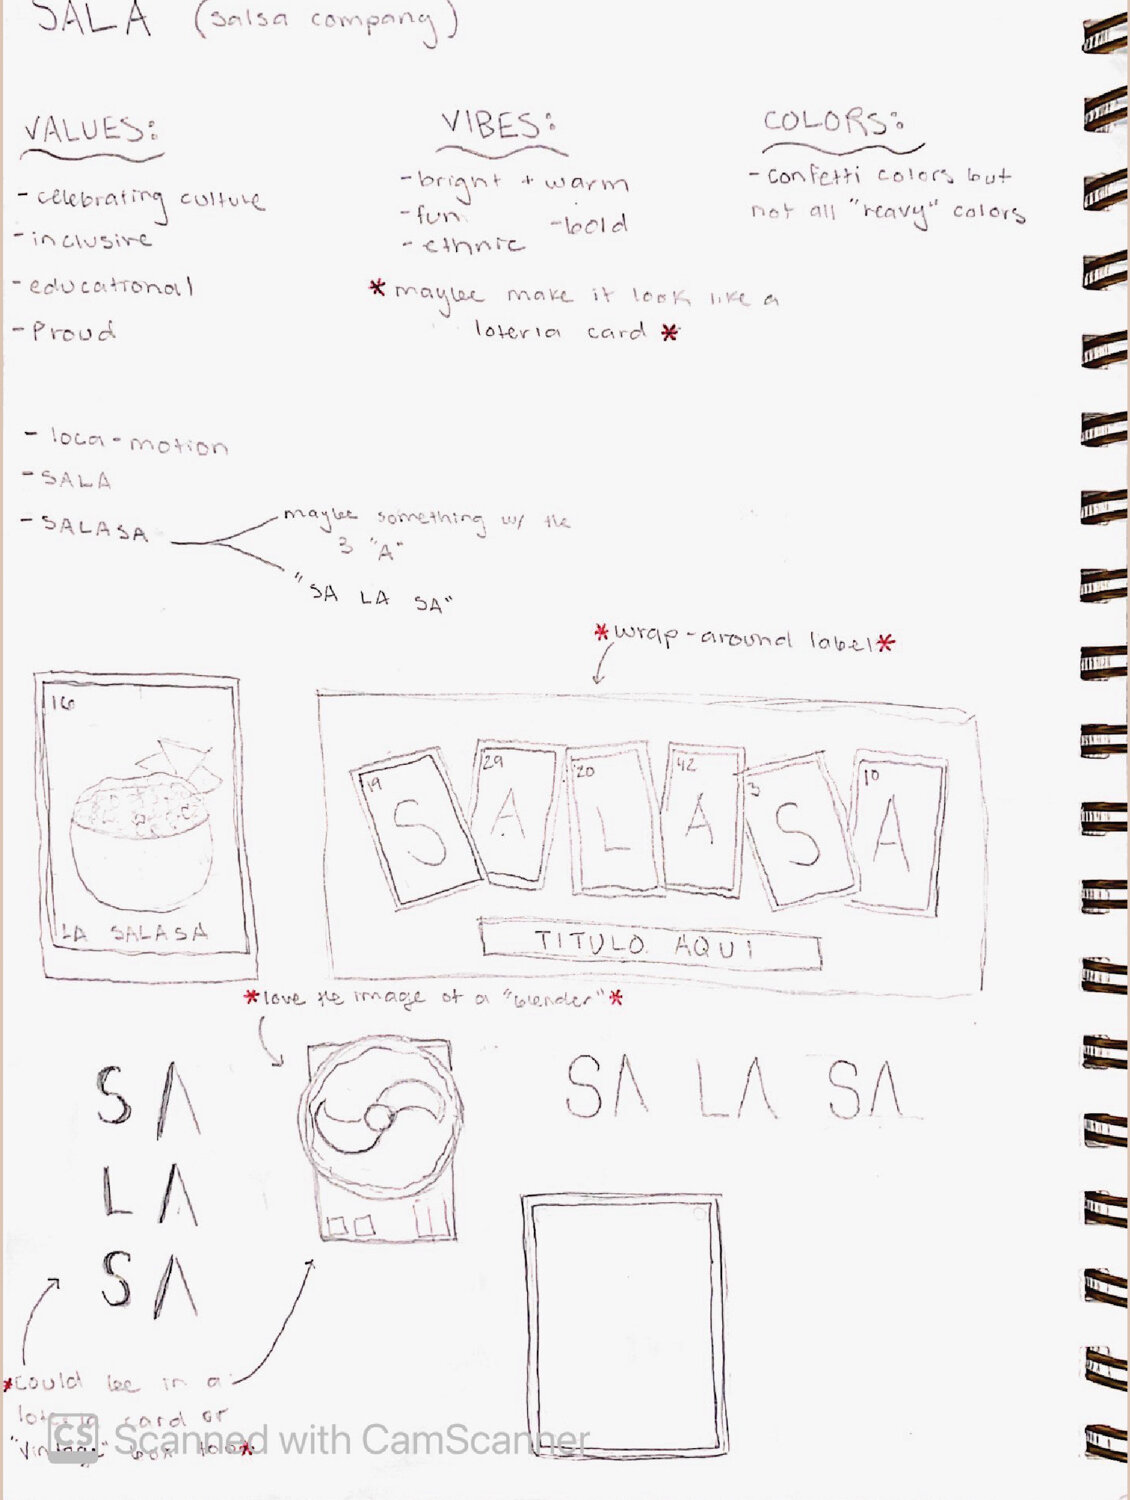 SALA (salsa company)
VALUES:
- celebrating culture
- inclusive
- educational
- Proud
VIBES:
- bright + warm
- fun
- bold
- ethnic
* maybe make it look like a
loteria card *
COLORS:
- confetti colors but
not all "heavy" colors
- loca-motion
- SALA
- SALASA
maybe something w/ the
3 "A"
"SA LA SA"
*wrap-around label*
16
LA SALASA
19 29 20 42 3 10
S A L A S A
TITULO AQUI
*love the image of a "blender"*
SA
LA
SA
SA LA SA
*could be in a
loteria card or
"vintage"
CS Scanned with CamScanner